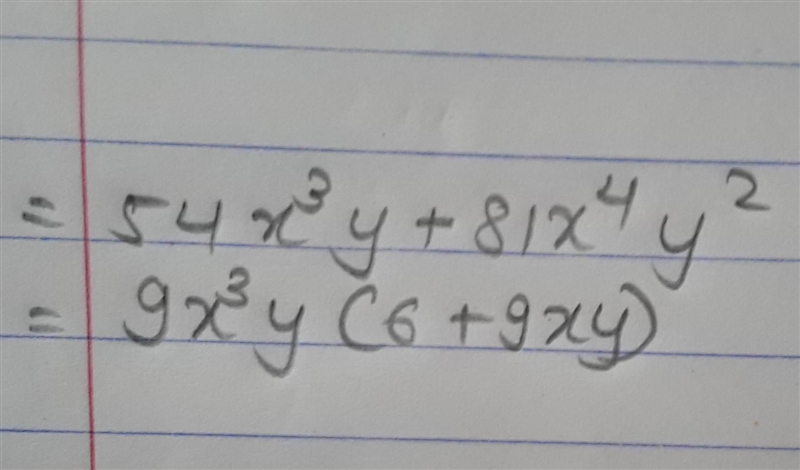 = 54x³y + 81x⁴y²
= 9x³y (6 + 9xy)